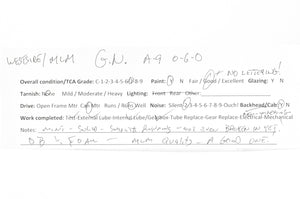 WESTSIDE/MLM G.N. A-9 0-6-0
* NO LETTERING!
Overall condition/TCA Grade: C-1-2-3-4-5-6-7-8-9 Paint: Y N Fair / Good / Excellent Glazing: Y N
Tarnish: None Mild / Moderate / Heavy Lighting: Front Rear Other
Drive: Open Frame Mtr Can Mtr Runs / Runs Well Noise: Silent 2-3-4-5-6-7-8-9 Ouch! Backhead/Cab: Y N
Work completed: Test-External Lube-Internal Lube/Gel-Gear Tube Replace-Gear Replace-Electrical-Mechanical
Notes: MINT - SOLID - SMOOTH RUNNING - NOT EVEN BROKEN IN YET!
OB & FOAM - MLM QUALITY - A GOOD ONE.